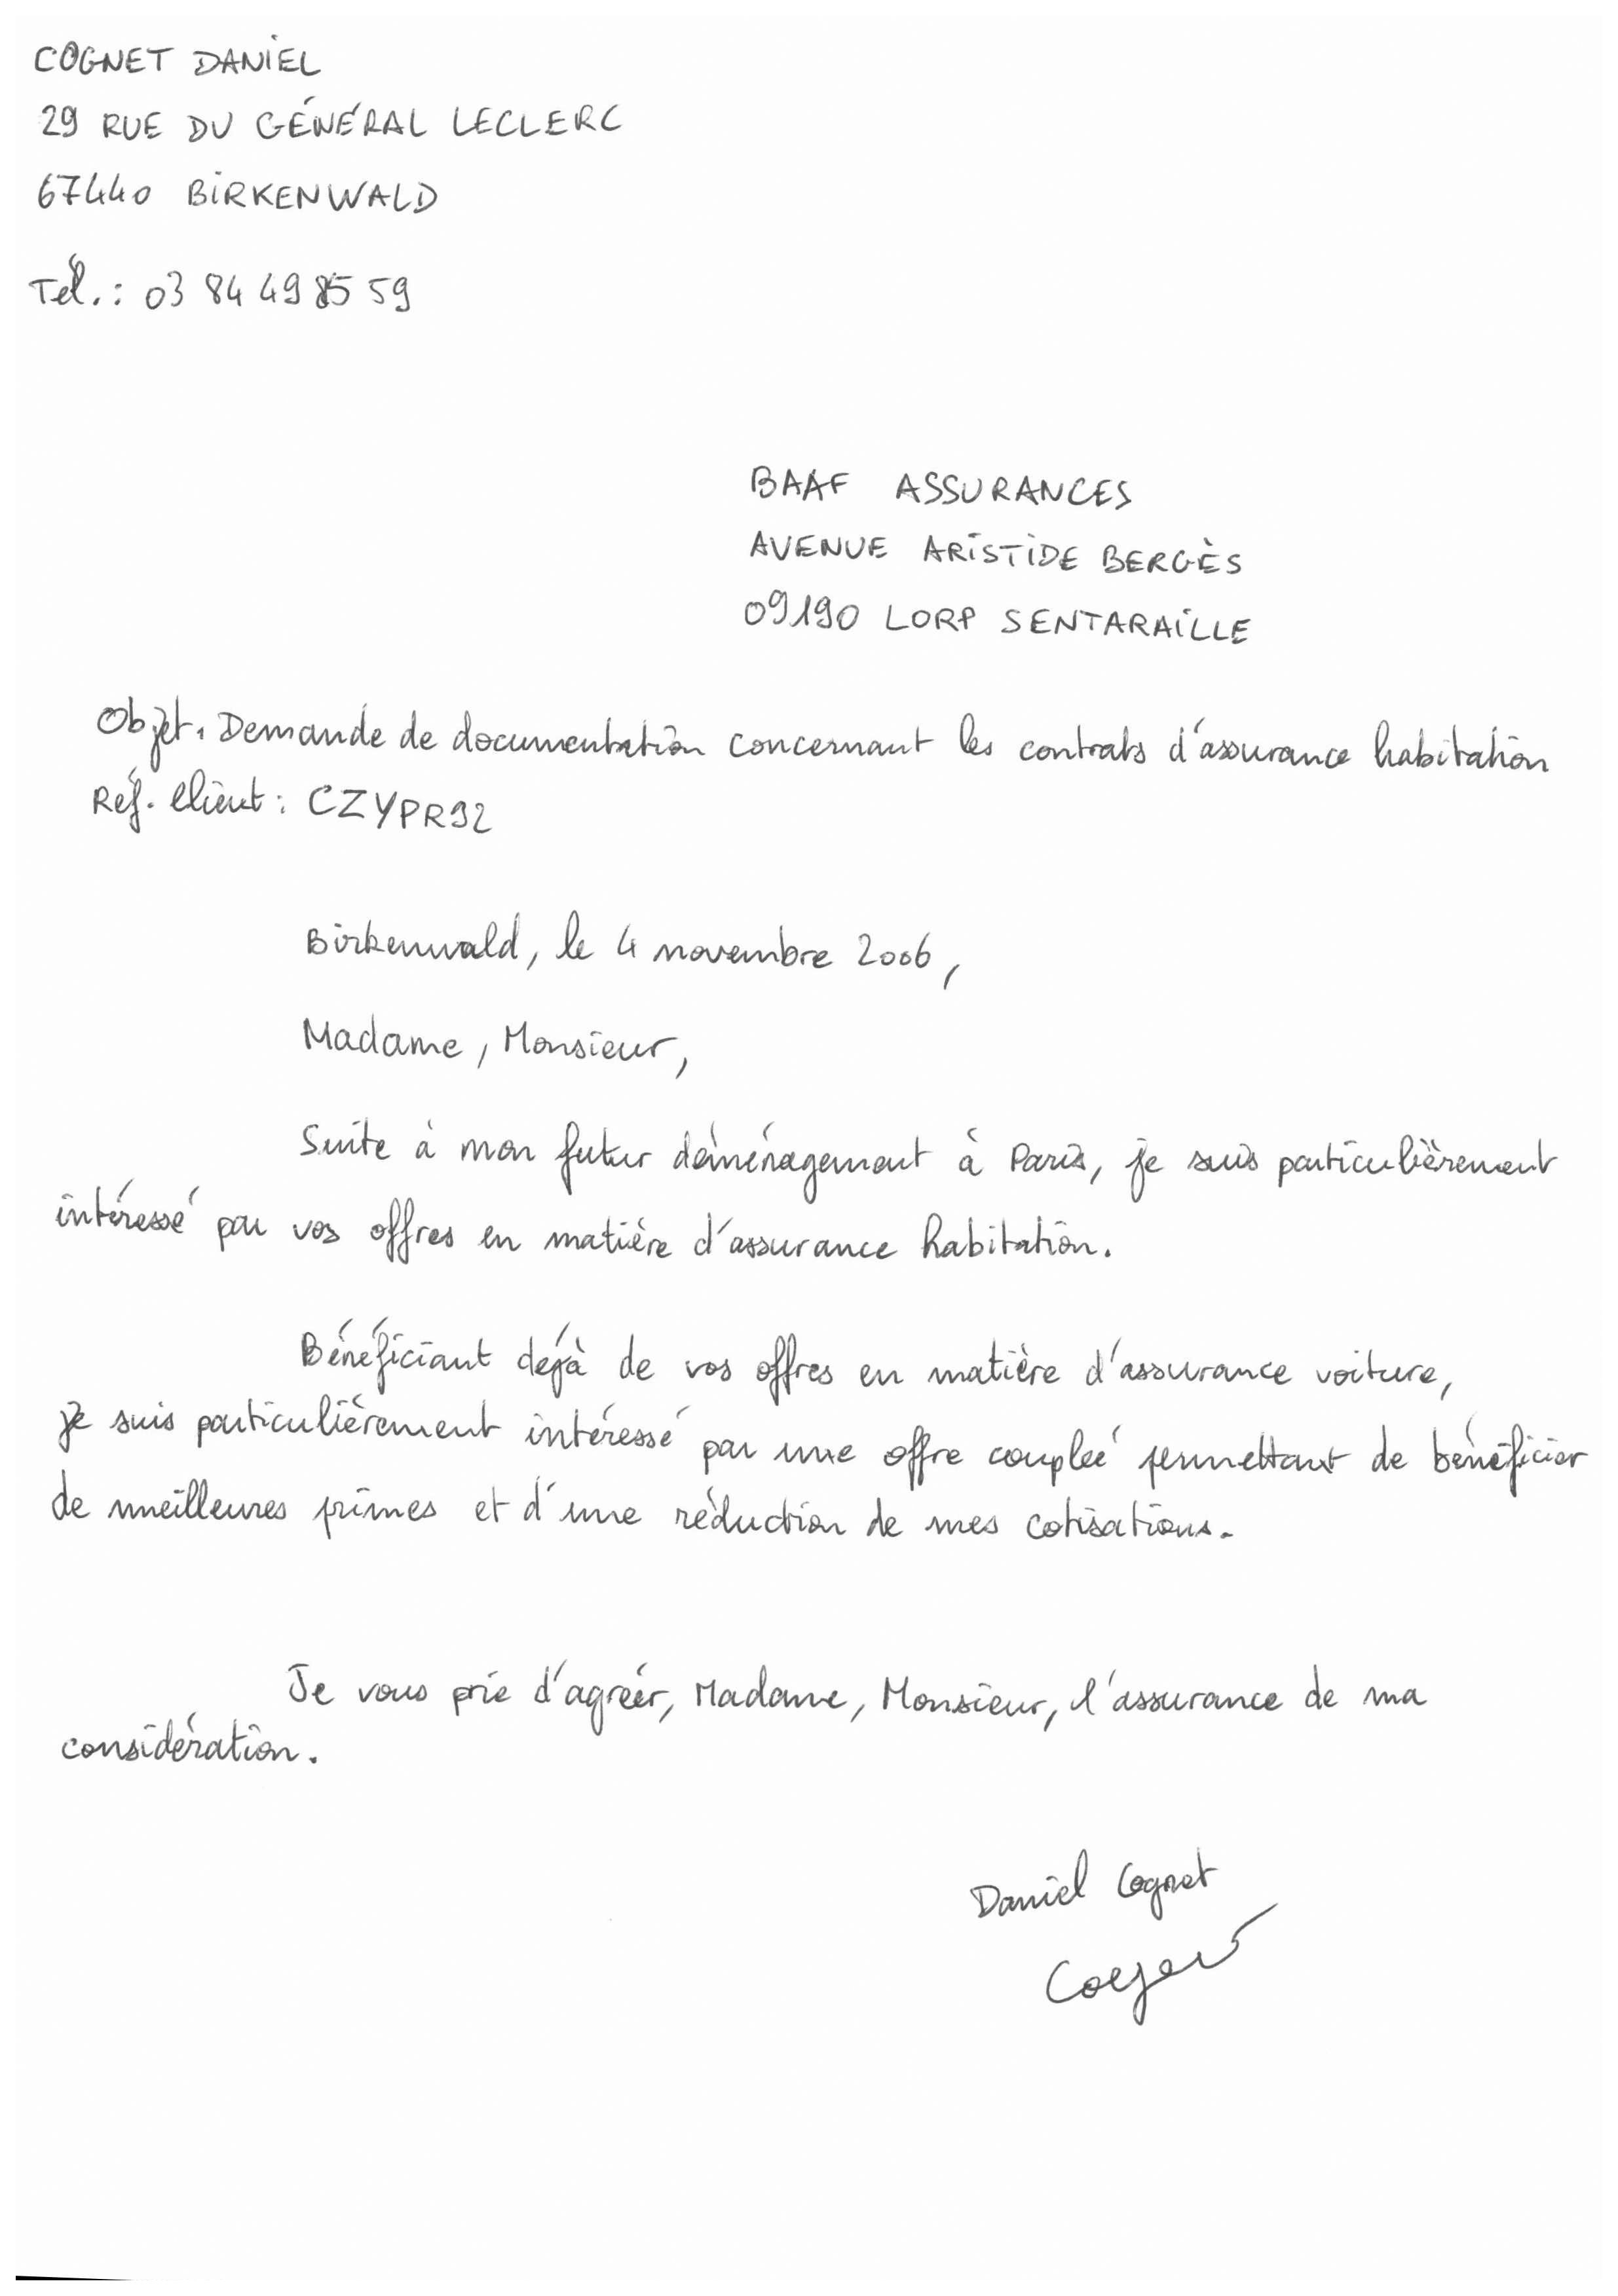 COGNET DANIEL
29 RUE DU GÉNÉRAL LECLERC
67440 BIRKENWALD
Tél.: 03 84 49 85 59
BAAF ASSURANCES
AVENUE ARISTIDE BERGÈS
09190 LORP SENTARAILLE
Objet. Demande de documentation concernant les contrats d'assurance habitation
Réf. Client: CZYPR92
Birkenwald, le 4 novembre 2006,
Madame, Monsieur,
Suite à mon futur déménagement à Paris, je suis particulièrement
intéressé par vos offres en matière d'assurance habitation.
Bénéficiant déjà de vos offres en matière d'assurance voiture,
je suis particulièrement intéressé par une offre couplée permettant de bénéficier
de meilleures primes et d'une réduction de mes cotisations.
Je vous prie d'agréer, Madame, Monsieur, l'assurance de ma
considération.
Daniel Cognet